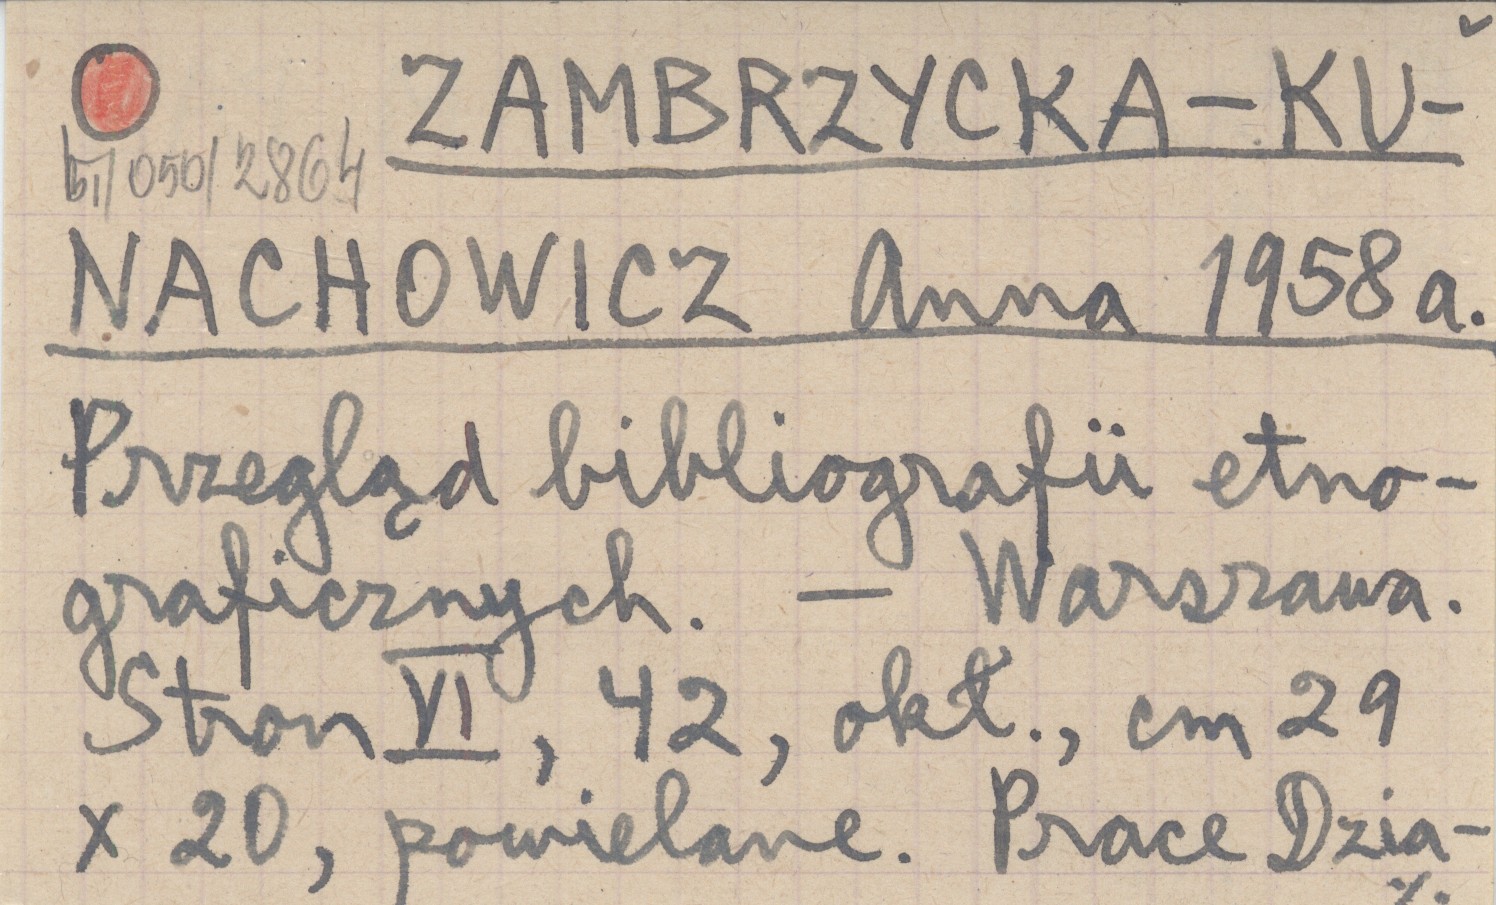 ZAMBRZYCKA-KU-
b1/050/2864
NACHOWICZ Anna 1958a.
Przegląd bibliografii etno-
graficznych. — Warszawa.
Stron VI, 42, okł., cm 29
x 20, powielane. Prace Dzia-
./.